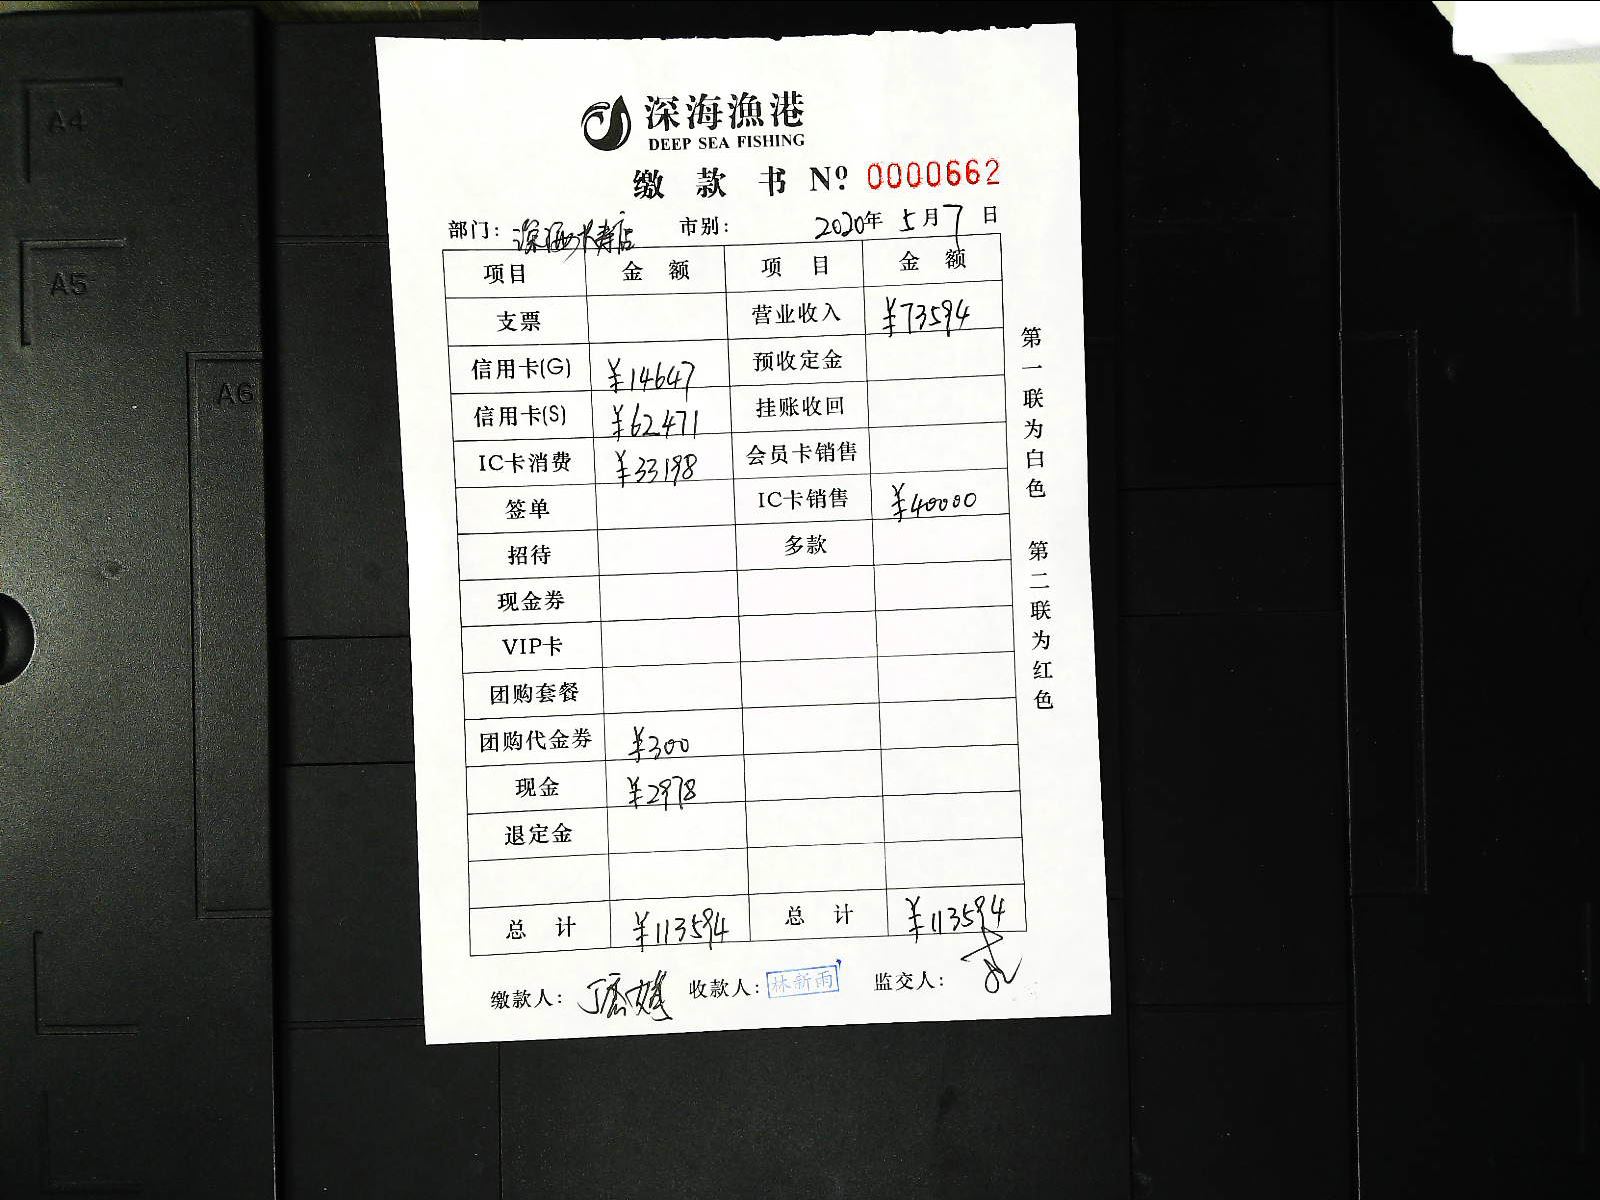 A4
A5
A6
深海漁港
DEEP SEA FISHING
缴 款 书 Nº 0000662
部门： 市别： 2020年 5月7日
项目 金 额 项 目 金 额
支票 营业收入 ¥73594
信用卡(G) ¥14647 预收定金
信用卡(S) ¥62471 挂账收回
IC卡消费 ¥33198 会员卡销售
签单 IC卡销售 ¥40000
招待 多款
现金券
VIP卡
团购套餐
团购代金券 ¥300
现金 ¥2978
退定金
总 计 ¥113594 总 计 ¥113594
缴款人： 收款人：林新雨 监交人：
第一联为白色 第二联为红色